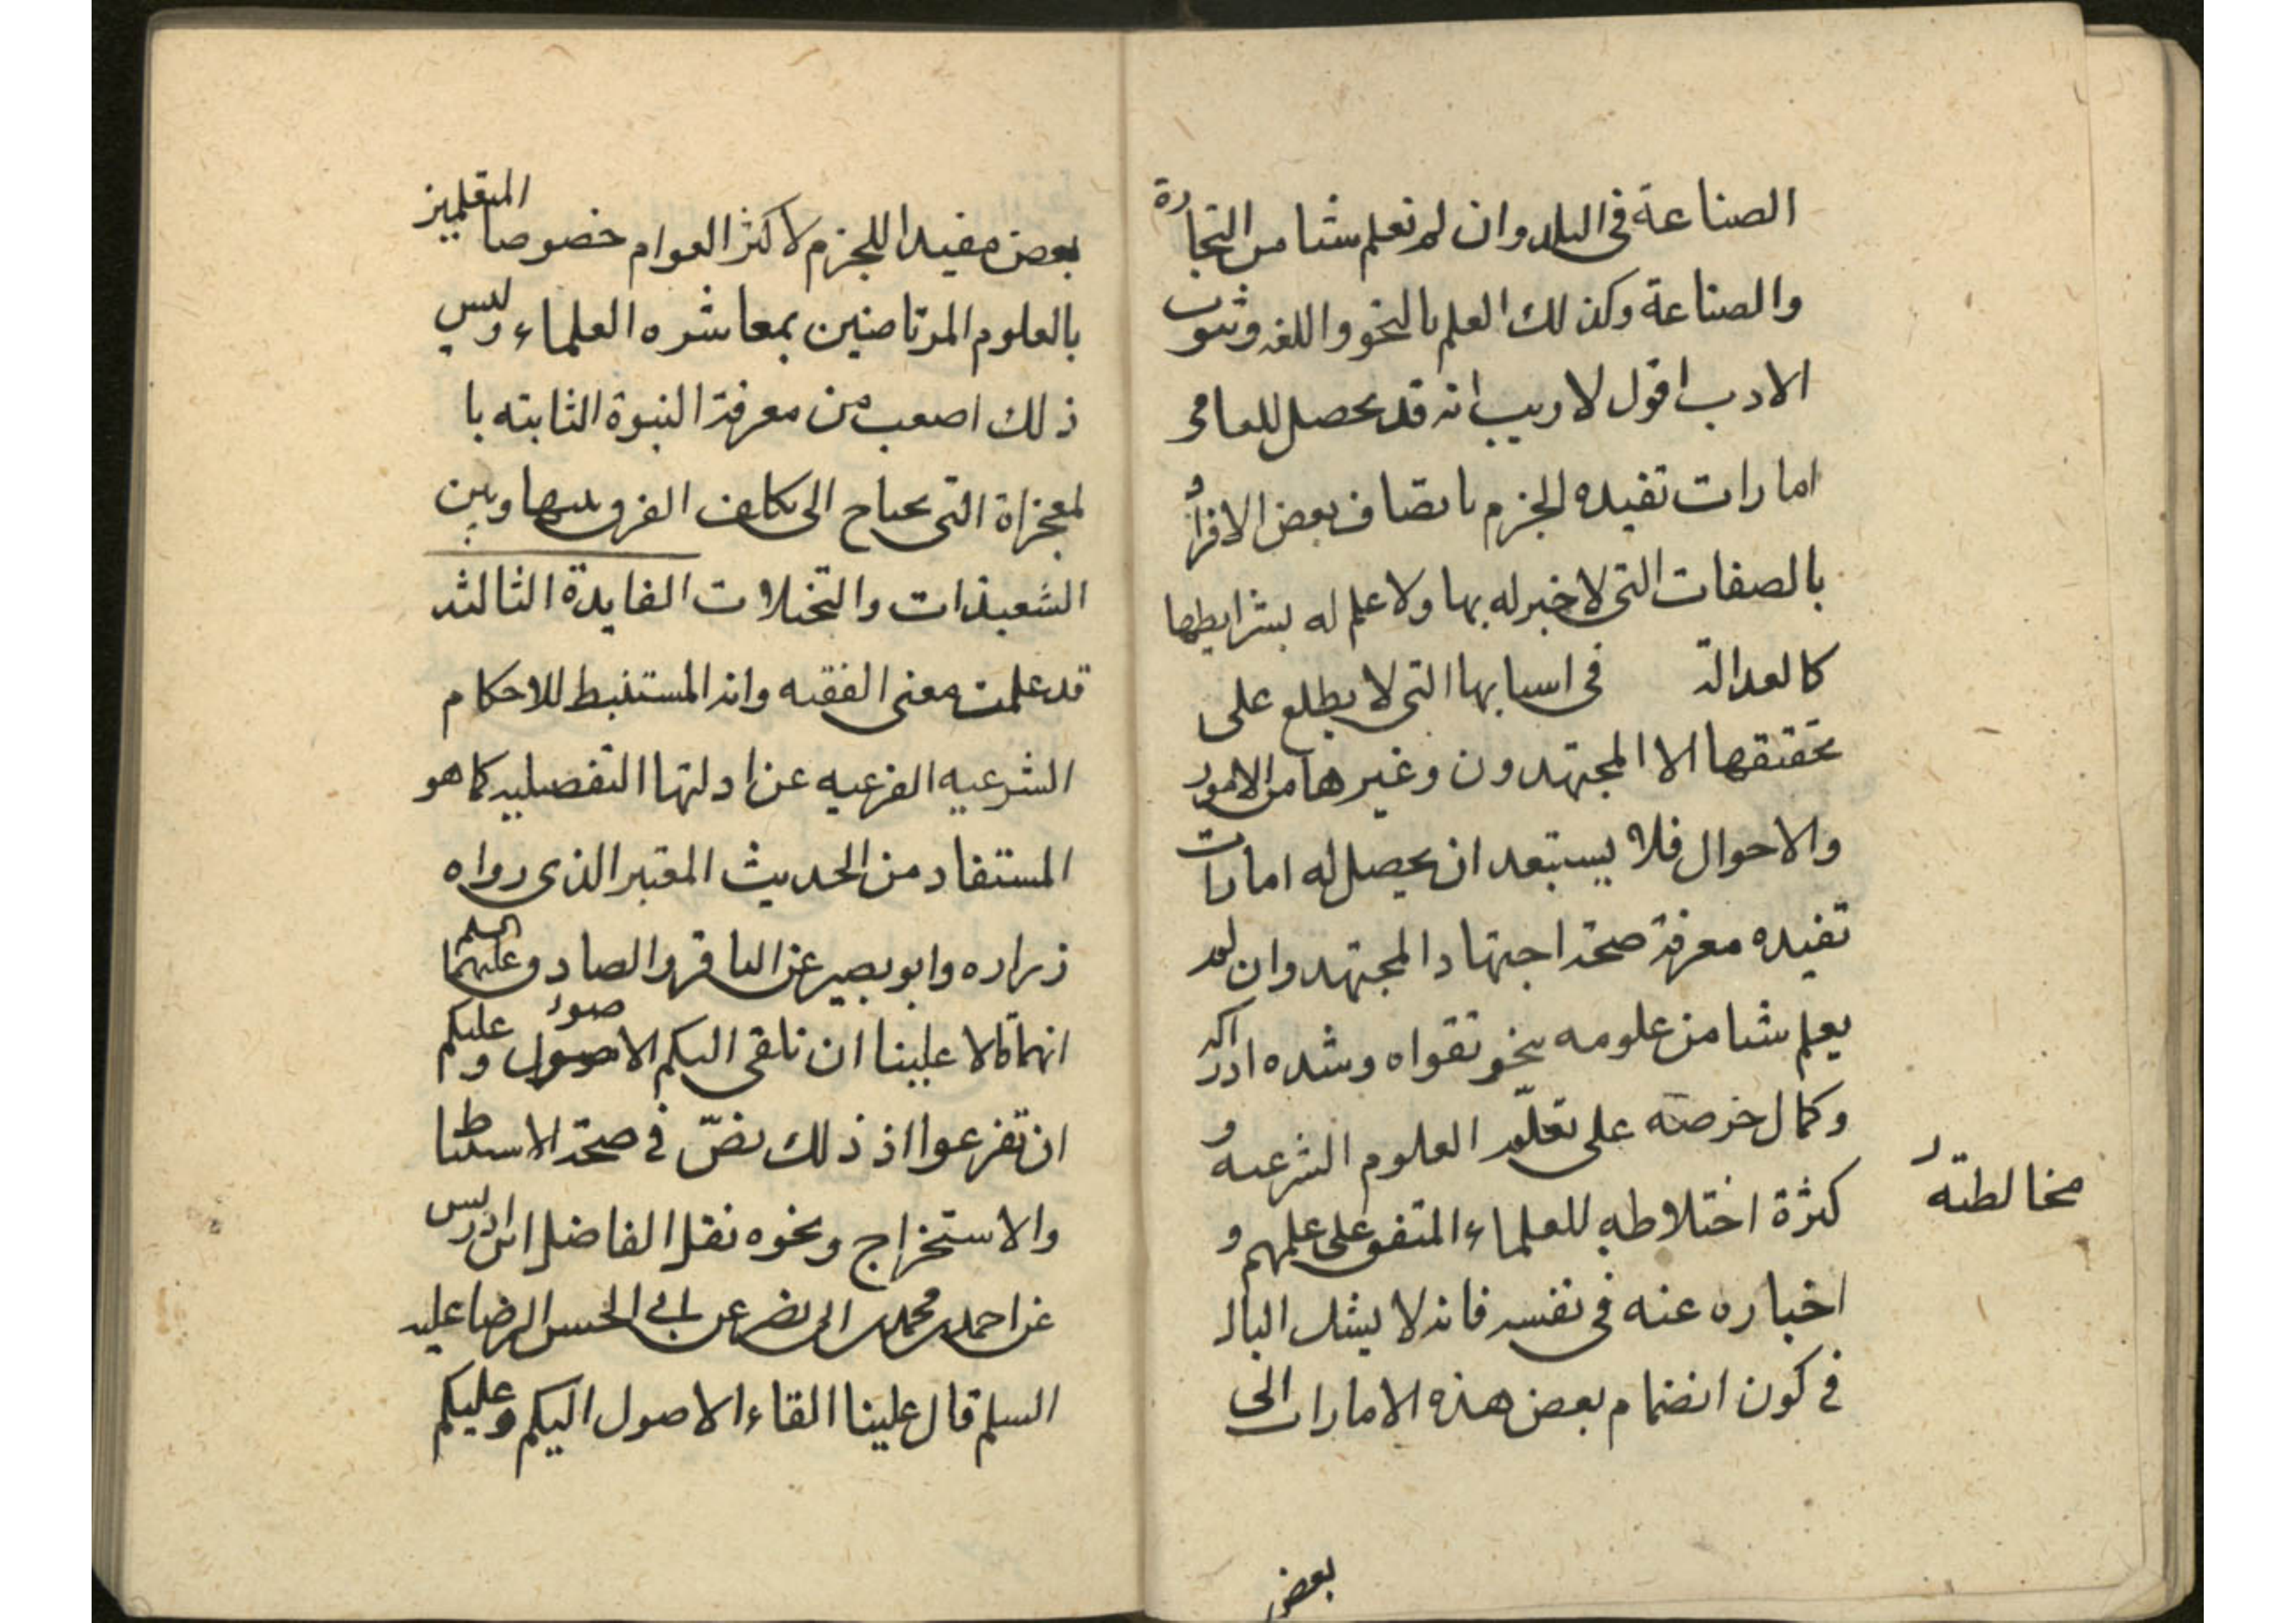 الصناعة فى البلد وان لم تعلم شئا من التجارة
والصناعة وكذلك العلم بالنحو واللغه وثبوت
الادب اقول لا ريب انه قد يحصل للعامى
امارات تفيده الجزم باتصاف بعض الافراد
بالصفات التى لا خبر له بها ولا علم له بشرايطها
كالعدالة فى اسبابها التى لا يطلع على
تحقيقها الا المجتهدون وغيرها من الامور
والاحوال فلا يستبعد ان يحصل له امارات
تفيده معرفة صحة اجتهاد المجتهد وان لم
يعلم شئا من علومه بنحو تقواه وشده ادراكه
وكمال حرصه على تعلّم العلوم الشرعيه و
كثرة اختلاطه للعلماء المتفق على علمهم و
مخالطته
اخباره عنه فى نفسه فانه لا يشك البال
فى كون انضمام بعض هذه الامارات الى
بعض
بعض مفيدا للجزم لاكثر العوام خصوصا المتعلمين
بالعلوم المرتاضين بمعاشره العلماء وليس
ذلك اصعب من معرفة النبوة الثابته با
لمعجزاة التى يحتاج الى تكلف الفرق بينها وبين
الشعبذات والتخيلات الفايدة الثالثة
قد علمت معنى الفقيه وانه المستنبط للاحكام
الشرعيه الفرعيه عن ادلتها التفصيليه كما هو
المستفاد من الحديث المعتبر الذى رواه
زراره وابو بصير عن الباقر والصادق عليهما السلم
انهما قالا علينا ان نلقى اليكم الاصول وعليكم
ان تفرعوا اذ ذلك نصّ فى صحة الاستنباط
والاستخراج ونحوه نقل الفاضل ابن ادريس
عن احمد بن محمد بن ابى نصر عن ابى الحسن الرضا عليه
السلم قال علينا القاء الاصول اليكم وعليكم